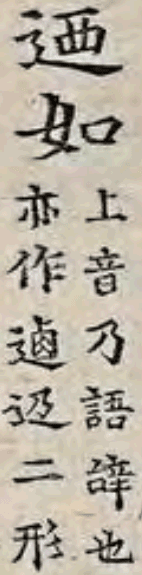 迺如
上音乃語辝也
亦作逌辸二形